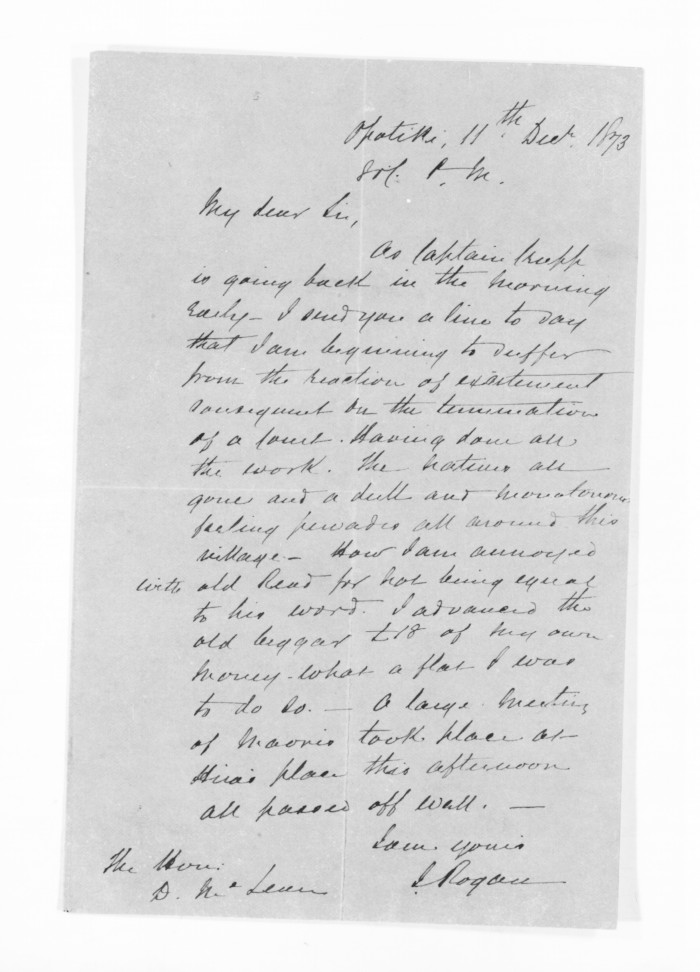 Opotiki, 11th Decr. 1873
P.M.
My dear Sir,
As Captain Crapp
is going back in the morning
early - I send you a line to day
that I am beginning to suffer
from the reaction of excitement
consequent on the termination
of a Court. Having done all
the work. The natives all
gone and a dull and monotonous
feeling pervades all around this
village - How I am annoyed
with old Read for not being equal
to his word. I advanced the
old beggar £18 of my own
money - what a flat I was
to do so. - A large meeting
of Maoris took place at
Hira's place this afternoon
all passed off well. -
I am yours
J. Rogan
The Hon:
D. McLean